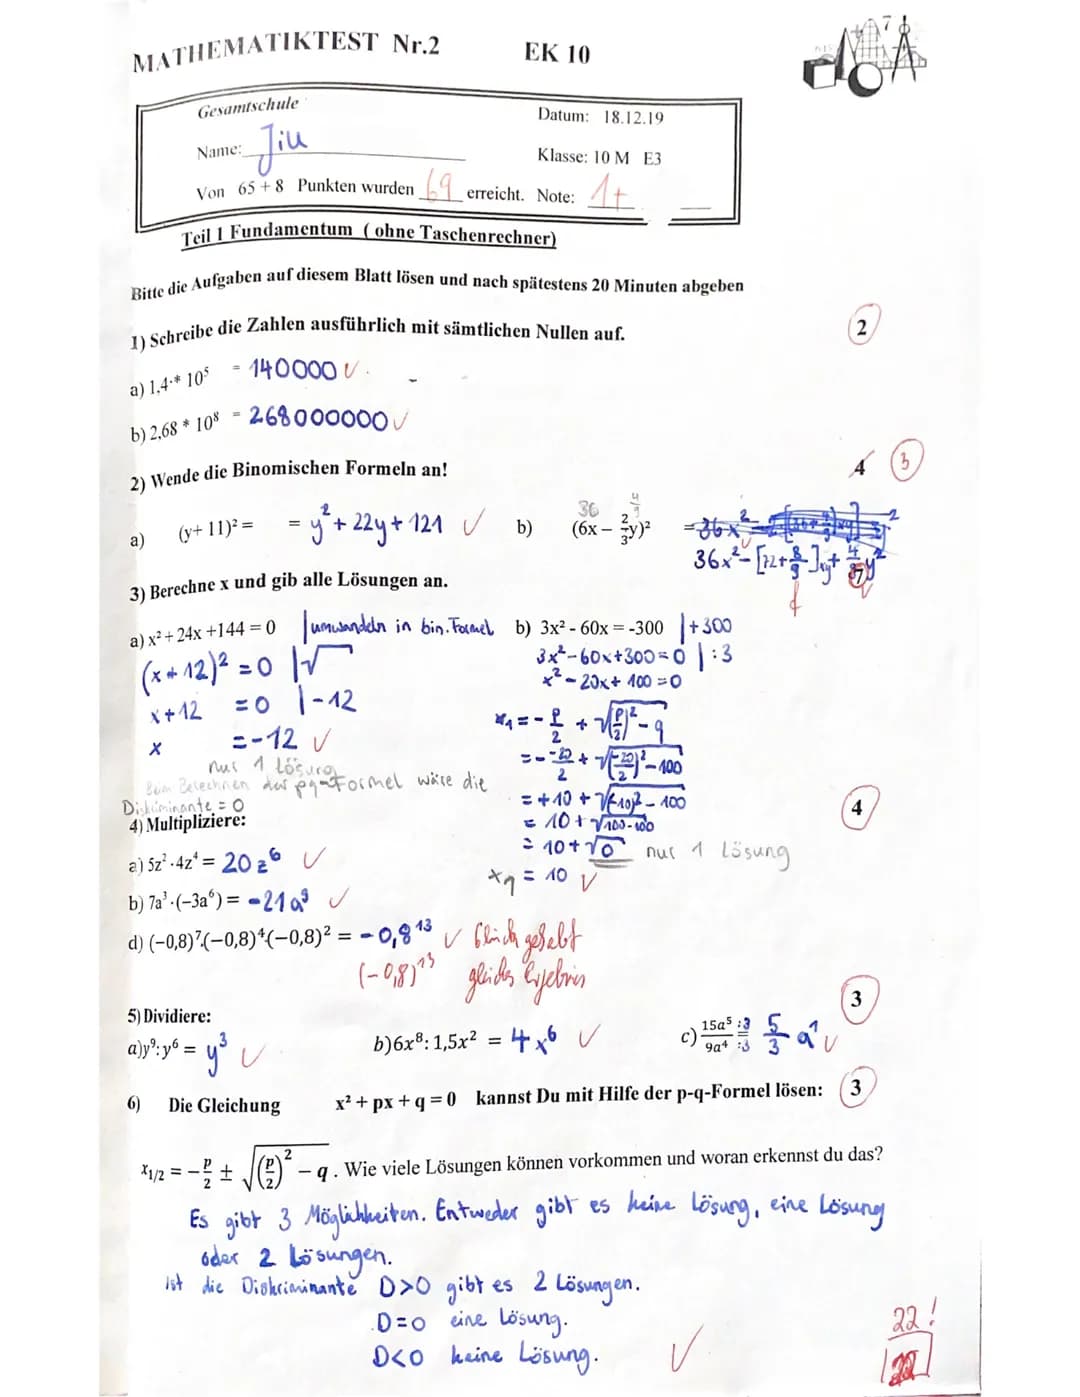 MATHEMATIKTEST Nr.2 EK 10
Gesamtschule
Datum: 18.12.19
Name: Jiu
Klasse: 10 M E3
Von 65 + 8 Punkten wurden 69 erreicht. Note: 1+
Teil 1 Fundamentum ( ohne Taschenrechner)
Bitte die Aufgaben auf diesem Blatt lösen und nach spätestens 20 Minuten abgeben
1) Schreibe die Zahlen ausführlich mit sämtlichen Nullen auf. 2
a) 1,4·* 10⁵ = 140000 ✓
b) 2,68 * 10⁸ = 268000000 ✓
2) Wende die Binomischen Formeln an! 4 3
36 4/9
a) (y+ 11)² = = y² + 22y + 121 ✓ b) (6x – 2/3y)² = 36x²
36x² - [72 + 8/9]xy +
3) Berechne x und gib alle Lösungen an.
a) x² + 24x +144 = 0 | umwandeln in bin. Formel b) 3x² - 60x = -300 | +300
(x + 12)² = 0 | √ 3x² - 60x + 300 = 0 | :3
x + 12 = 0 | -12 x² - 20x + 100 = 0
x = -12 ✓ x₁ = - p/2 + √((p/2)² - q)
nur 1 Lösung = - -20/2 + √((-20/2)² - 100)
Beim Berechnen der pq-Formel wäre die = +10 + √((-10)² - 100)
Diskriminante = 0 = 10 + √(100-100)
= 10 + √0 nur 1 Lösung
x₁ = 10 ✓
4) Multipliziere: 4
a) 5z² · 4z⁴ = 20z⁶ ✓
b) 7a³ · (−3a⁶) = -21a⁹ ✓
d) (−0,8)⁷·(−0,8)⁴·(−0,8)² = -0,8¹³ ✓ Glück gehabt
(-0,8)¹³ gleiches Ergebnis
5) Dividiere: 3
a)y⁹: y⁶ = y³ ✓ b)6x⁸: 1,5x² = 4x⁶ ✓ c) 15a⁵ :3 / 9a⁴ :3 = 5/3 a¹ ✓
6) Die Gleichung x² + px + q = 0 kannst Du mit Hilfe der p-q-Formel lösen: 3
x₁/₂ = − p/2 ± √((p/2)² − q) . Wie viele Lösungen können vorkommen und woran erkennst du das?
Es gibt 3 Möglichkeiten. Entweder gibt es keine Lösung, eine Lösung
oder 2 Lösungen.
Ist die Diskriminante D>0 gibt es 2 Lösungen.
D=0 eine Lösung.
D<0 keine Lösung. ✓
22!
22